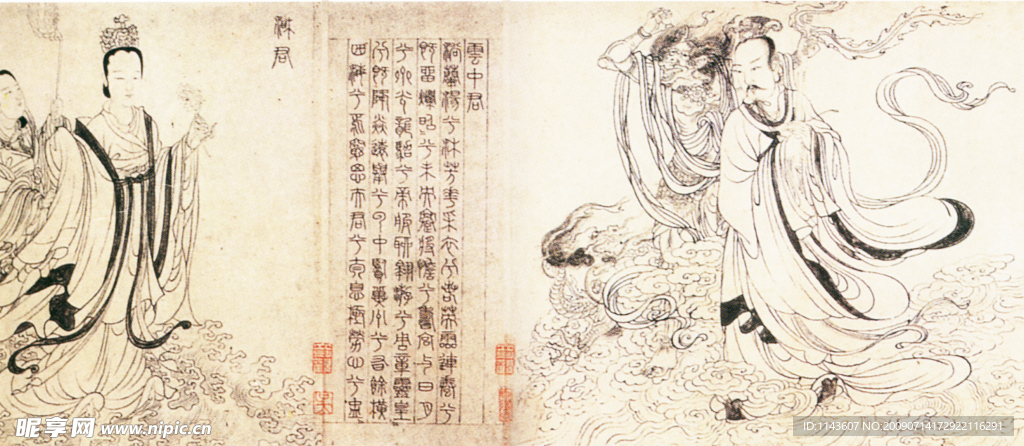 湘君
雲中君
浴蘭湯兮沐芳華采衣兮若英靈連蜷兮
既留爛昭兮未央蹇將憺兮壽宮與日月
兮齊光龍駕兮帝服聊翱遊兮周章靈皇
兮既降猋遠舉兮雲中覽冀州兮有餘橫
四海兮焉窮思夫君兮太息極勞心兮忡
昵享网 www.nipic.cn
ID:1143607 NO:20090714172922116291